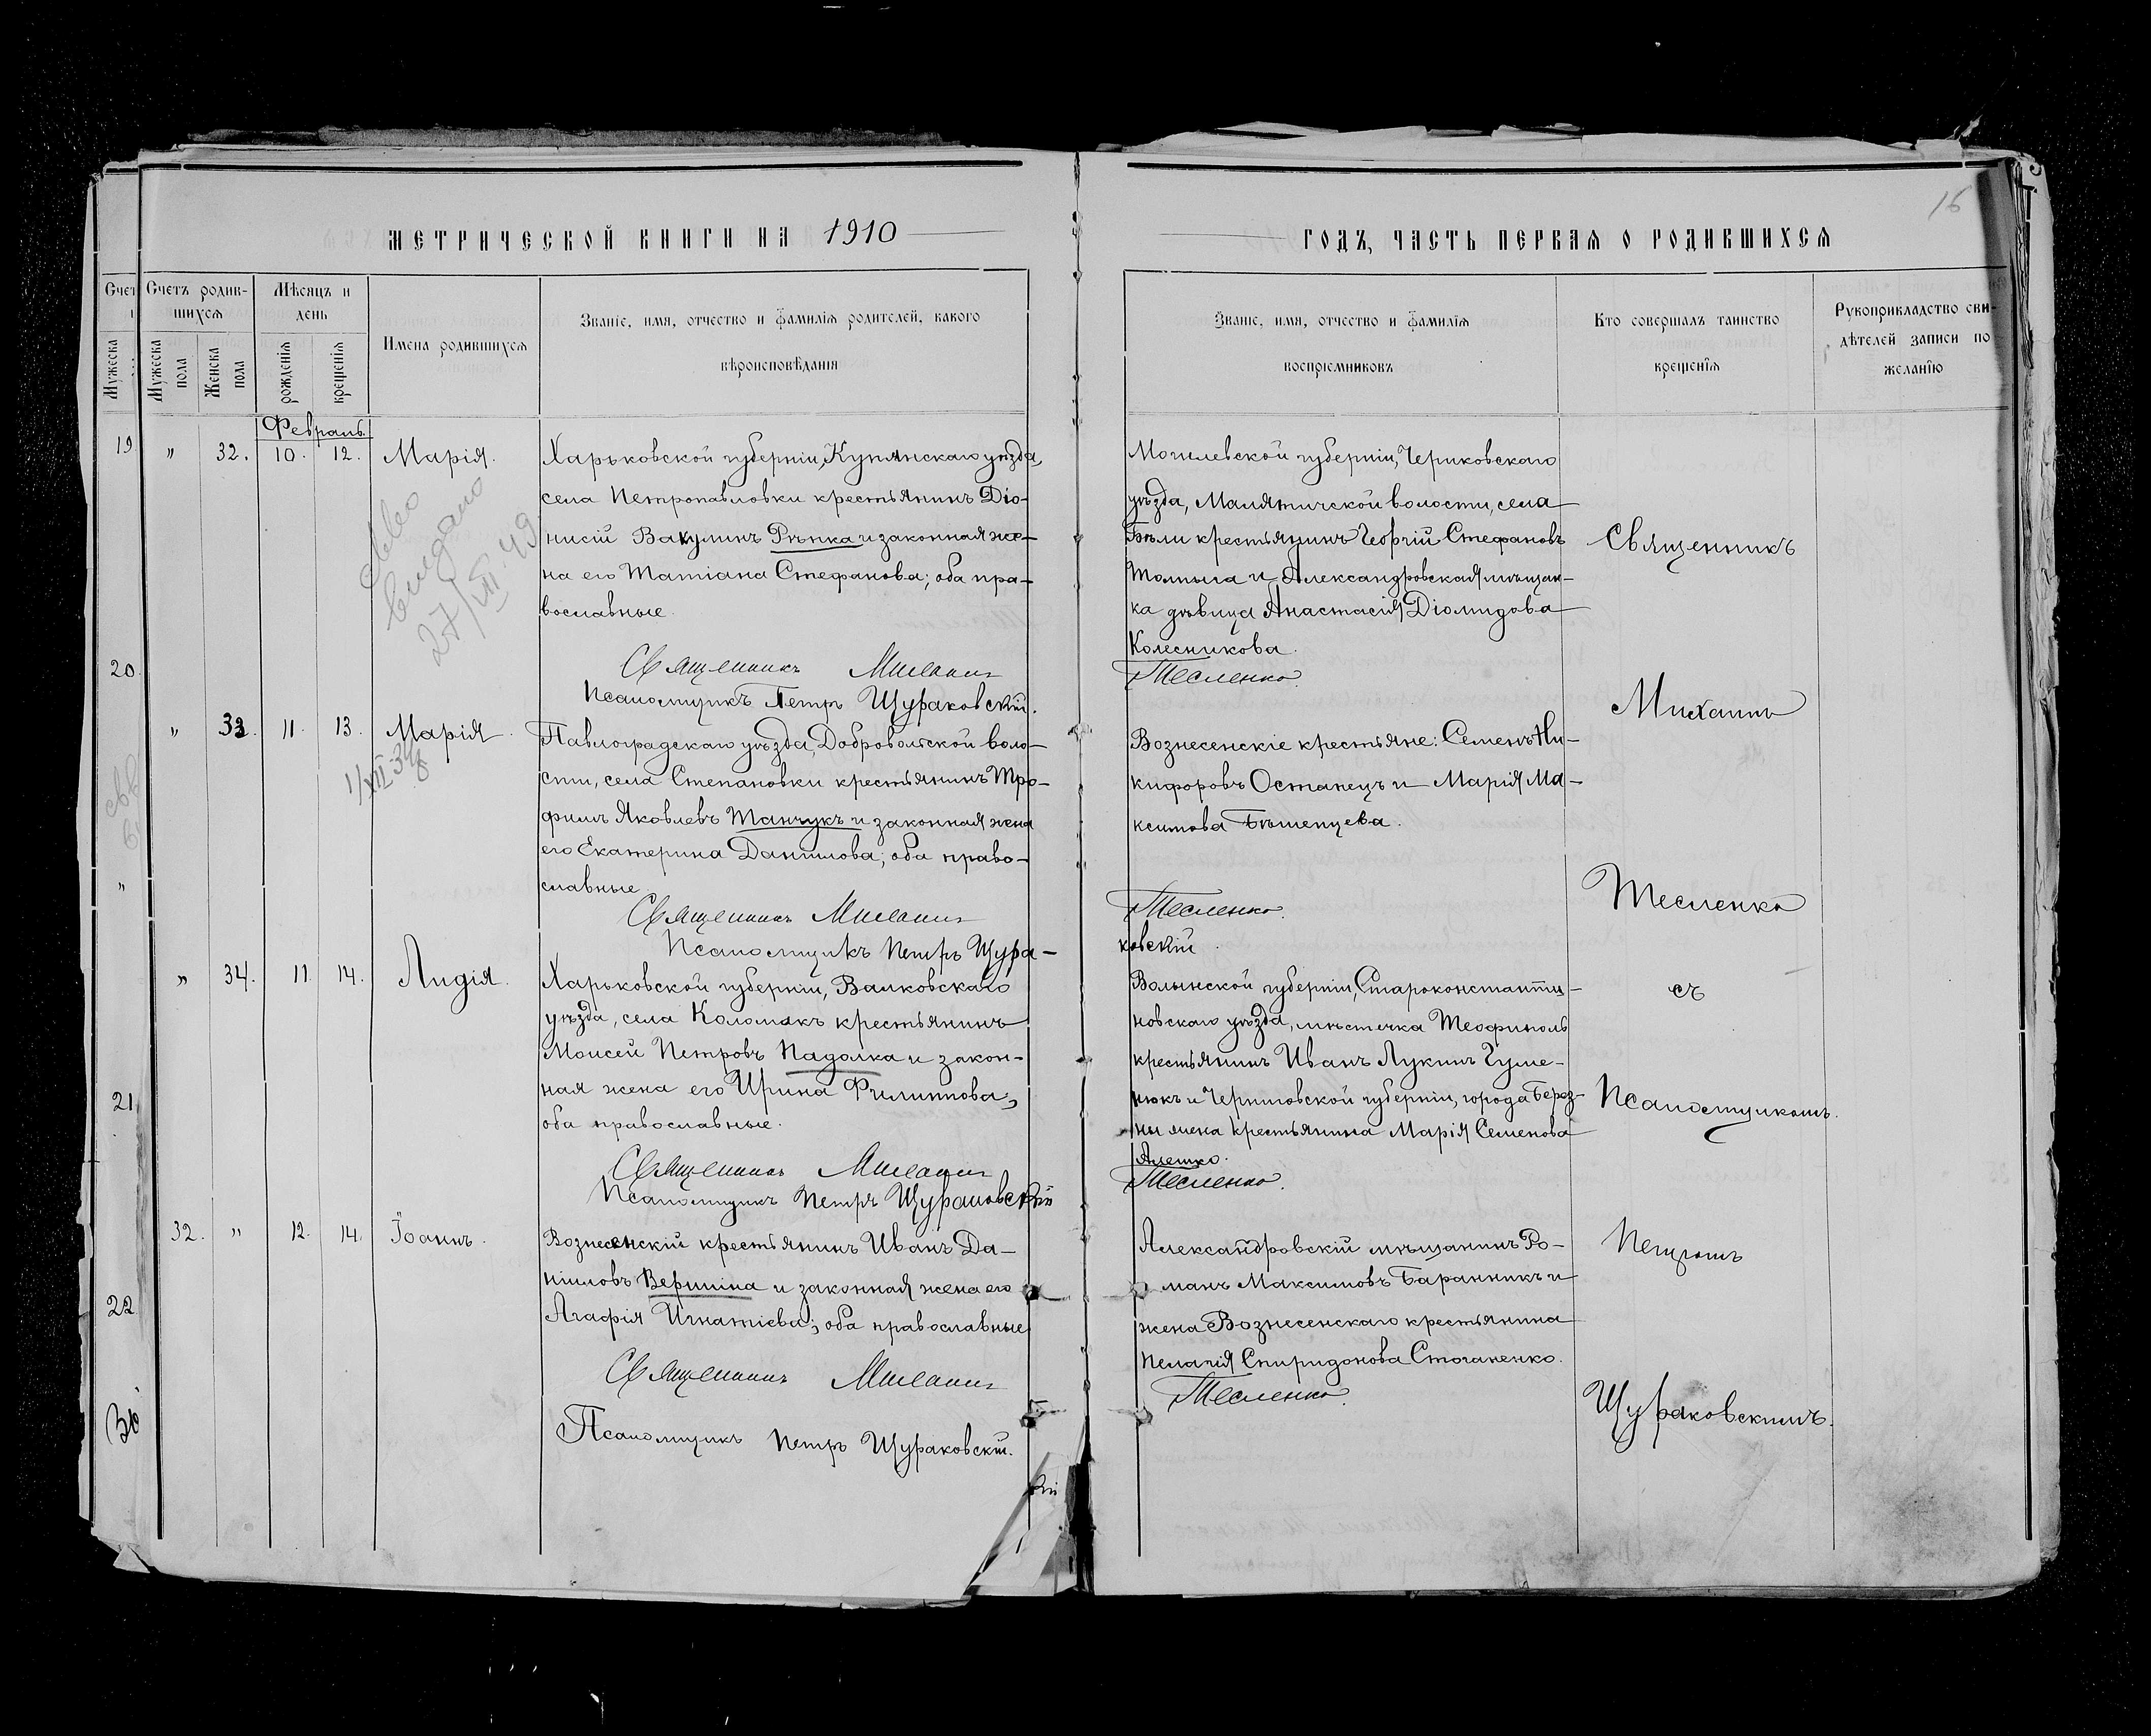 МЕТРИЧЕСКОЙ КНИГИ НА 1910
ГОДЪ, ЧАСТЬ ПЕРВАЯ О РОДИВШИХСЯ
16
Счетъ родив-
шихся
Мѣсяцъ и
день
Имена родившихся
Званіе, имя, отчество и фамилія родителей, какого
вѣроисповѣданія
Мужеска
пола
Женска
пола
рожденія
крещенія
Званіе, имя, отчество и фамилія
воспріемниковъ
Кто совершалъ таинство
крещенія
Рукоприкладство сви-
дѣтелей записи по
желанію
Февраль
" 32. 10. 12. Марія.
Харьковской губерніи, Купянскаго уѣзда,
села Петропавловки крестьянинъ Діо-
нисій Вакулинъ Рѣпка и законная же-
на его Татіана Стефанова; оба пра-
вославные.
Священникъ Михаилъ
Псаломщикъ Петръ Щураковскій.
Могилевской губерніи, Чериковскаго
уѣзда, Малятичской волости, села
крестьянинъ Георгій Стефановъ
и Александровская мѣщан-
ка дѣвица Анастасія Діомидова
Колесникова.
Тесленко.
выдано
27/VIII 49
" 33. 11. 13. Марія.
Павлоградскаго уѣзда, Добровольской воло-
сти, села Степановки крестьянинъ Тро-
фимъ Яковлевъ Танчукъ и законная жена
его Екатерина Данилова; оба право-
славные.
Священникъ Михаилъ
Псаломщикъ Петръ Щура-
Вознесенскіе крестьяне: Семенъ Ни-
кифоровъ Останецъ и Марія Ма-
ксимова Бѣшенцева.
Тесленко.
ковскій.
" 34. 11. 14. Лидія.
Харьковской губерніи, Валковскаго
уѣзда, села Коломакъ крестьянинъ
Моисей Петровъ Падалка и закон-
ная жена его Ирина Филиппова,
оба православные.
Священникъ Михаилъ
Псаломщикъ Петръ Щураковскій
Волынской губерніи, Староконстанти-
новскаго уѣзда, мѣстечка Теофиполь
крестьянинъ Иванъ Лукинъ Гуме-
нюкъ и Черниговской губерніи, города Берез-
ны жена крестьянина Марія Семенова
Алешко.
Тесленко.
32. " 12. 14. Іоаннъ.
Вознесенскій крестьянинъ Иванъ Да-
ніиловъ Вершина и законная жена его
Агафія Игнатіева; оба православные
Священникъ Михаилъ
Псаломщикъ Петръ Щураковскій.
Александровскій мѣщанинъ Ро-
манъ Максимовъ Баранникъ и
жена Вознесенскаго крестьянина
Пелагія Спиридонова Стоганенко.
Тесленко.
Священникъ
Михаилъ
Тесленко
съ
Псаломщикомъ
Петромъ
Щураковскимъ.
19
20.
"
21
22